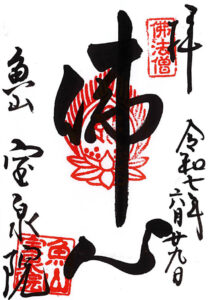 拝
佛法僧
令和七年六月廿九日
佛心
魚山 宝泉院
魚山